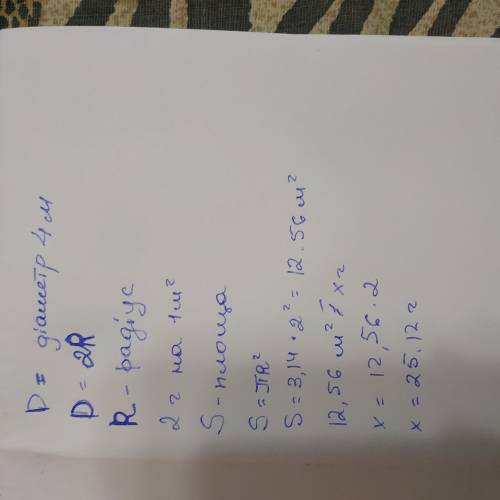 D = діаметр 4 м
D = 2R
R - радіус
2 г на 1 м²
S - площа
S = πR²
S = 3,14 · 2² = 12.56 м²
12,56 м² - х г
х = 12,56 · 2
х = 25.12 г